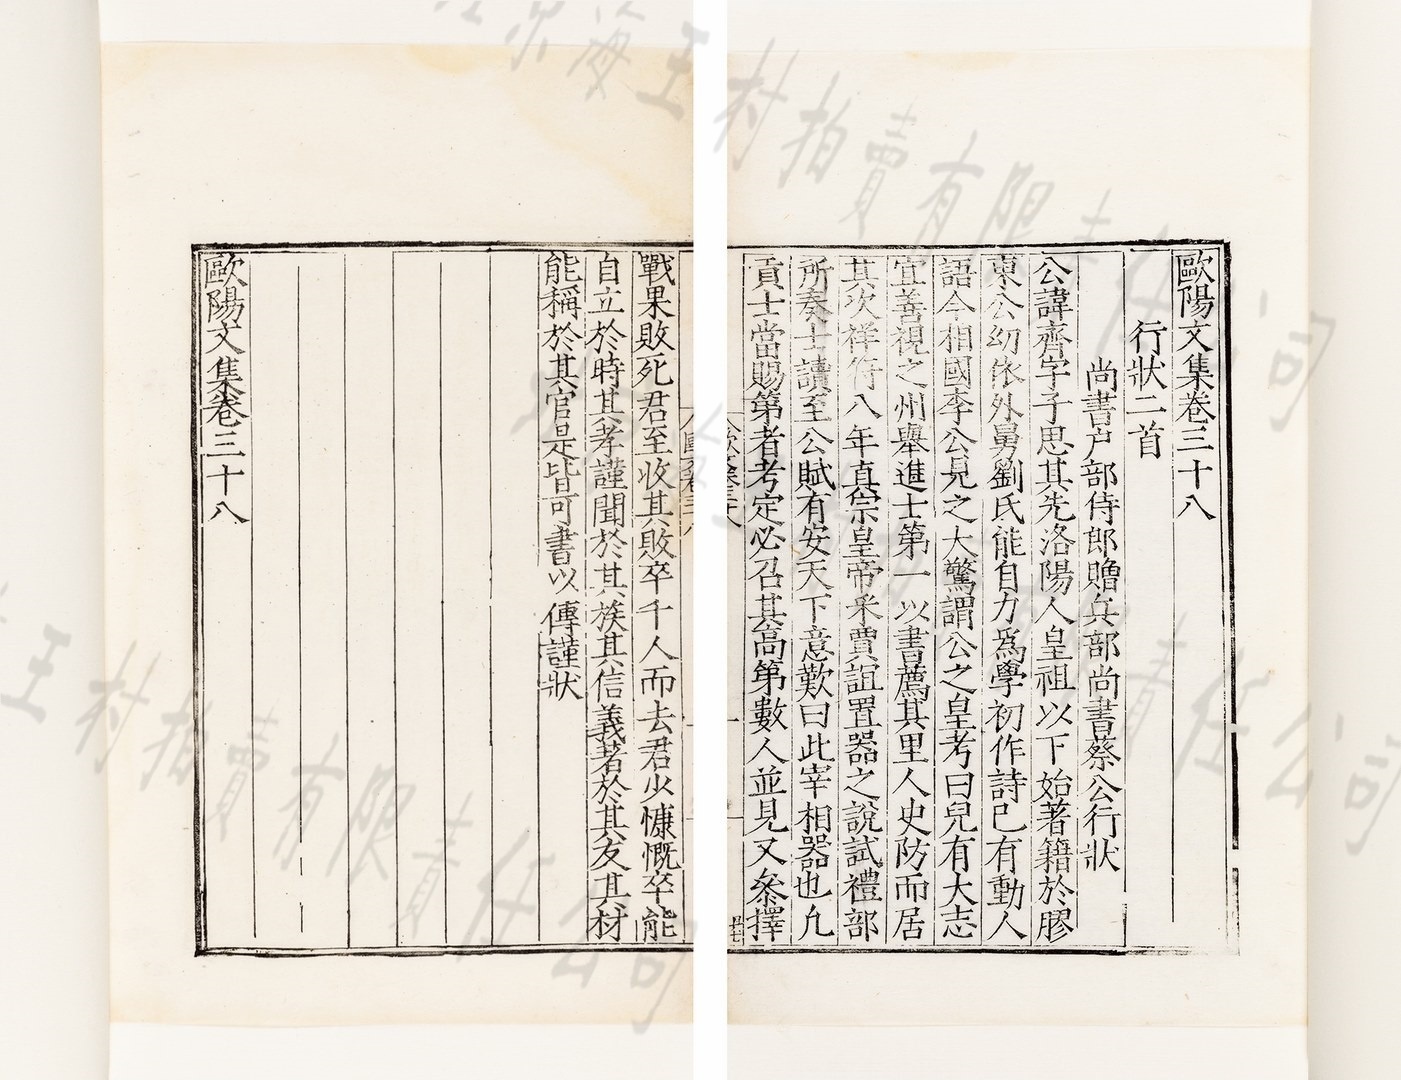 歐陽文集卷三十八
行狀二首
尚書户部侍郎贈兵部尚書蔡公行狀
公諱齊字子思其先洛陽人皇祖以下始著籍於膠
東公幼依外舅劉氏能自力爲學初作詩已有動人
語今相國李公見之大驚謂公之皇考曰兒有大志
宜善視之州舉進士第一以書薦其里人史防而居
其次祥符八年真宗皇帝采賈誼置器之說試禮部
所奏士讀至公賦有安天下意歎曰此宰相器也凡
貢士當賜第者考定必召其高第數人並見又參擇
戰果敗死君至收其敗卒千人而去君少慷慨卒能
自立於時其孝謹聞於其族其信義著於其友其材
能稱於其官是皆可書以傳謹狀
歐陽文集卷三十八
海王村拍賣有限責任公司
王村拍賣有限責任公司